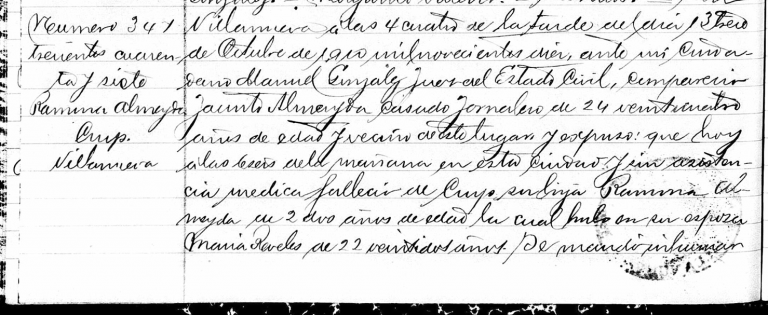 Numero 347
trecientos cuaren-
ta y siete
Ramina Almeyda
Crup.
Villanueva
Villanueva á las 4 cuatro de la tarde del dia 13 trece
de Octubre de 1910 mil novecientos diez, ante mi Ciuda-
dano Manuel González Juez del Estado Civil, comparecio
Jacinto Almeyda casado jornalero de 24 veinticuatro
años de edad y vecino de este lugar y expuso: que hoy
a las seis de la mañana en esta ciudad y sin asisten-
cia medica falleció de Crup, su hija Ramina Al-
meyda de 2 dos años de edad la cual hubo en su esposa
Maria Roveles de 22 veintidos años. Se mandó inhumar